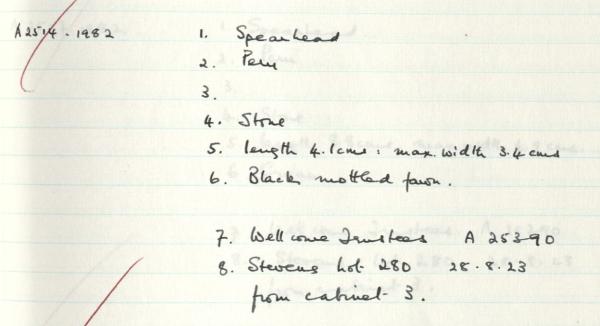 A2514.1982 1. Spearhead
2. Peru
3.
4. Stone
5. length 4.1cms : max. width 3.4cms
6. Black mottled fawn.
7. Wellcome Trustees A 25390
8. Stevens Lot 280 28.8.23
from cabinet 3.